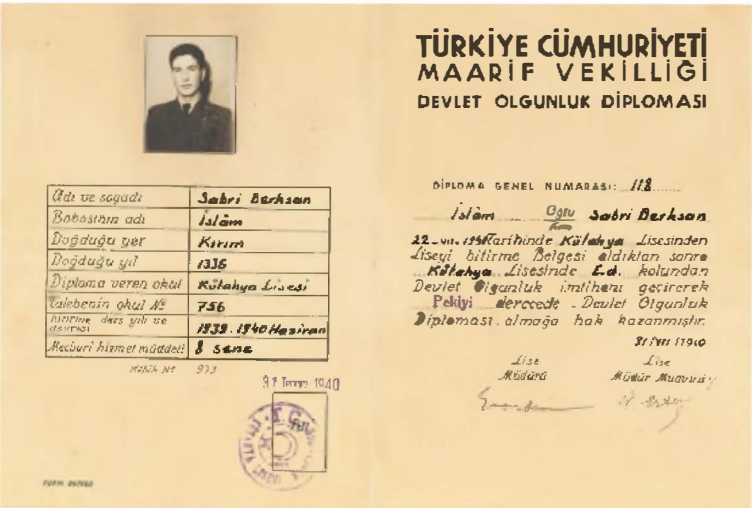 Adı ve soyadı Sabri Berksan
Babasının adı İslâm
Doğduğu yer Kırım
Doğduğu yıl 1336
Diploma veren okul Kütahya Lisesi
Talebenin okul № 756
Bitirme ders yılı ve devresi 1939-1940 Haziran
Mecburî hizmet müddeti 8 sene
№ 973
31 Temmuz 1940
T.C.
TÜRKİYE CÜMHURİYETİ
MAARİF VEKİLLİĞİ
DEVLET OLGUNLUK DİPLOMASI
DİPLOMA GENEL NUMARASI: 118
İslâm Oğlu Sabri Berksan
Kızı
22-VII-1940 Tarihinde Kütahya Lisesinden
Liseyi bitirme Belgesi aldıktan sonra
Kütahya Lisesinde Ed. kolundan
Devlet Olgunluk imtihanı geçirerek
Pekiyi derecede Devlet Olgunluk
Diploması almağa hak kazanmıştır.
1940
Lise Lise
Müdürü Müdür Muavini